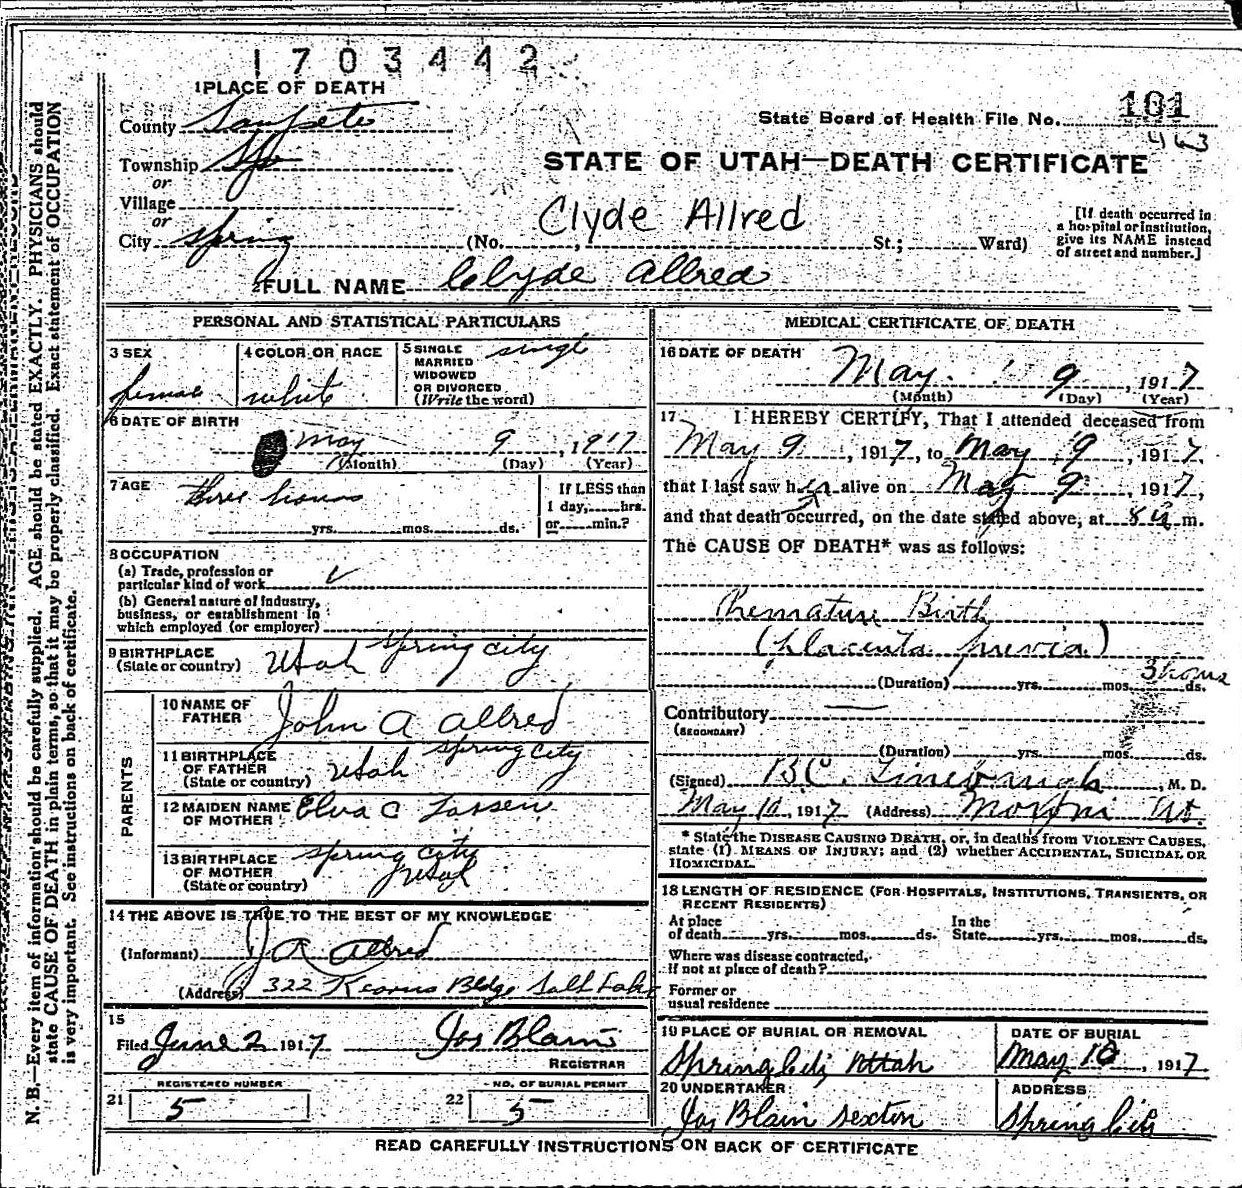 1703442
1 PLACE OF DEATH
101
State Board of Health File No.
463
County Sanpete
Township
or
Village
or
City Spring
STATE OF UTAH—DEATH CERTIFICATE
Clyde Allred
(No. , St.; Ward)
[If death occurred in
a hospital or institution,
give its NAME instead
of street and number.]
FULL NAME Clyde Allred
PERSONAL AND STATISTICAL PARTICULARS
3 SEX
female
4 COLOR OR RACE
white
5 SINGLE
MARRIED
WIDOWED
OR DIVORCED
(Write the word)
singl
6 DATE OF BIRTH
May 9, 1917
(Month) (Day) (Year)
7 AGE
three hours
yrs. mos. ds.
If LESS than
1 day, hrs.
or min.?
8 OCCUPATION
(a) Trade, profession or
particular kind of work
(b) General nature of industry,
business, or establishment in
which employed (or employer)
9 BIRTHPLACE
(State or country)
Utah Spring city
PARENTS
10 NAME OF
FATHER
John A Allred
11 BIRTHPLACE
OF FATHER
(State or country)
Utah Spring City
12 MAIDEN NAME
OF MOTHER
Elva C
13 BIRTHPLACE
OF MOTHER
(State or country)
Spring city
Utah
14 THE ABOVE IS TRUE TO THE BEST OF MY KNOWLEDGE
(Informant) J A Allred
(Address) 322 Kearns Bldge Salt Lake
15
Filed June 2 1917 Jos Blain
REGISTRAR
REGISTERED NUMBER
21 5
NO. OF BURIAL PERMIT
22 5
MEDICAL CERTIFICATE OF DEATH
16 DATE OF DEATH
May 9, 1917
(Month) (Day) (Year)
17 I HEREBY CERTIFY, That I attended deceased from
May 9, 1917, to May 9, 1917,
that I last saw her alive on May 9, 1917,
and that death occurred, on the date stated above, at 8 a m.
The CAUSE OF DEATH* was as follows:
Premature Birth
(placenta previa)
3 hours
(Duration) yrs. mos. ds.
Contributory
(SECONDARY)
(Duration) yrs. mos. ds.
(Signed) B.C. , M. D.
May 10, 1917 (Address) Moroni Ut.
* State the DISEASE CAUSING DEATH, or, in deaths from VIOLENT CAUSES,
state (1) MEANS OF INJURY; and (2) whether ACCIDENTAL, SUICIDAL, OR
HOMICIDAL.
18 LENGTH OF RESIDENCE (FOR HOSPITALS, INSTITUTIONS, TRANSIENTS, OR
RECENT RESIDENTS)
At place
of death yrs. mos. ds.
In the
State yrs. mos. ds.
Where was disease contracted,
if not at place of death?
Former or
usual residence
19 PLACE OF BURIAL OR REMOVAL
Spring City Utah
DATE OF BURIAL
May 10, 1917
20 UNDERTAKER
Jos Blain sexton
ADDRESS
Spring City
READ CAREFULLY INSTRUCTIONS ON BACK OF CERTIFICATE
N. B.—Every item of information should be carefully supplied. AGE should be stated EXACTLY. PHYSICIANS should
state CAUSE OF DEATH in plain terms, so that it may be properly classified. Exact statement of OCCUPATION
is very important. See instructions on back of certificate.